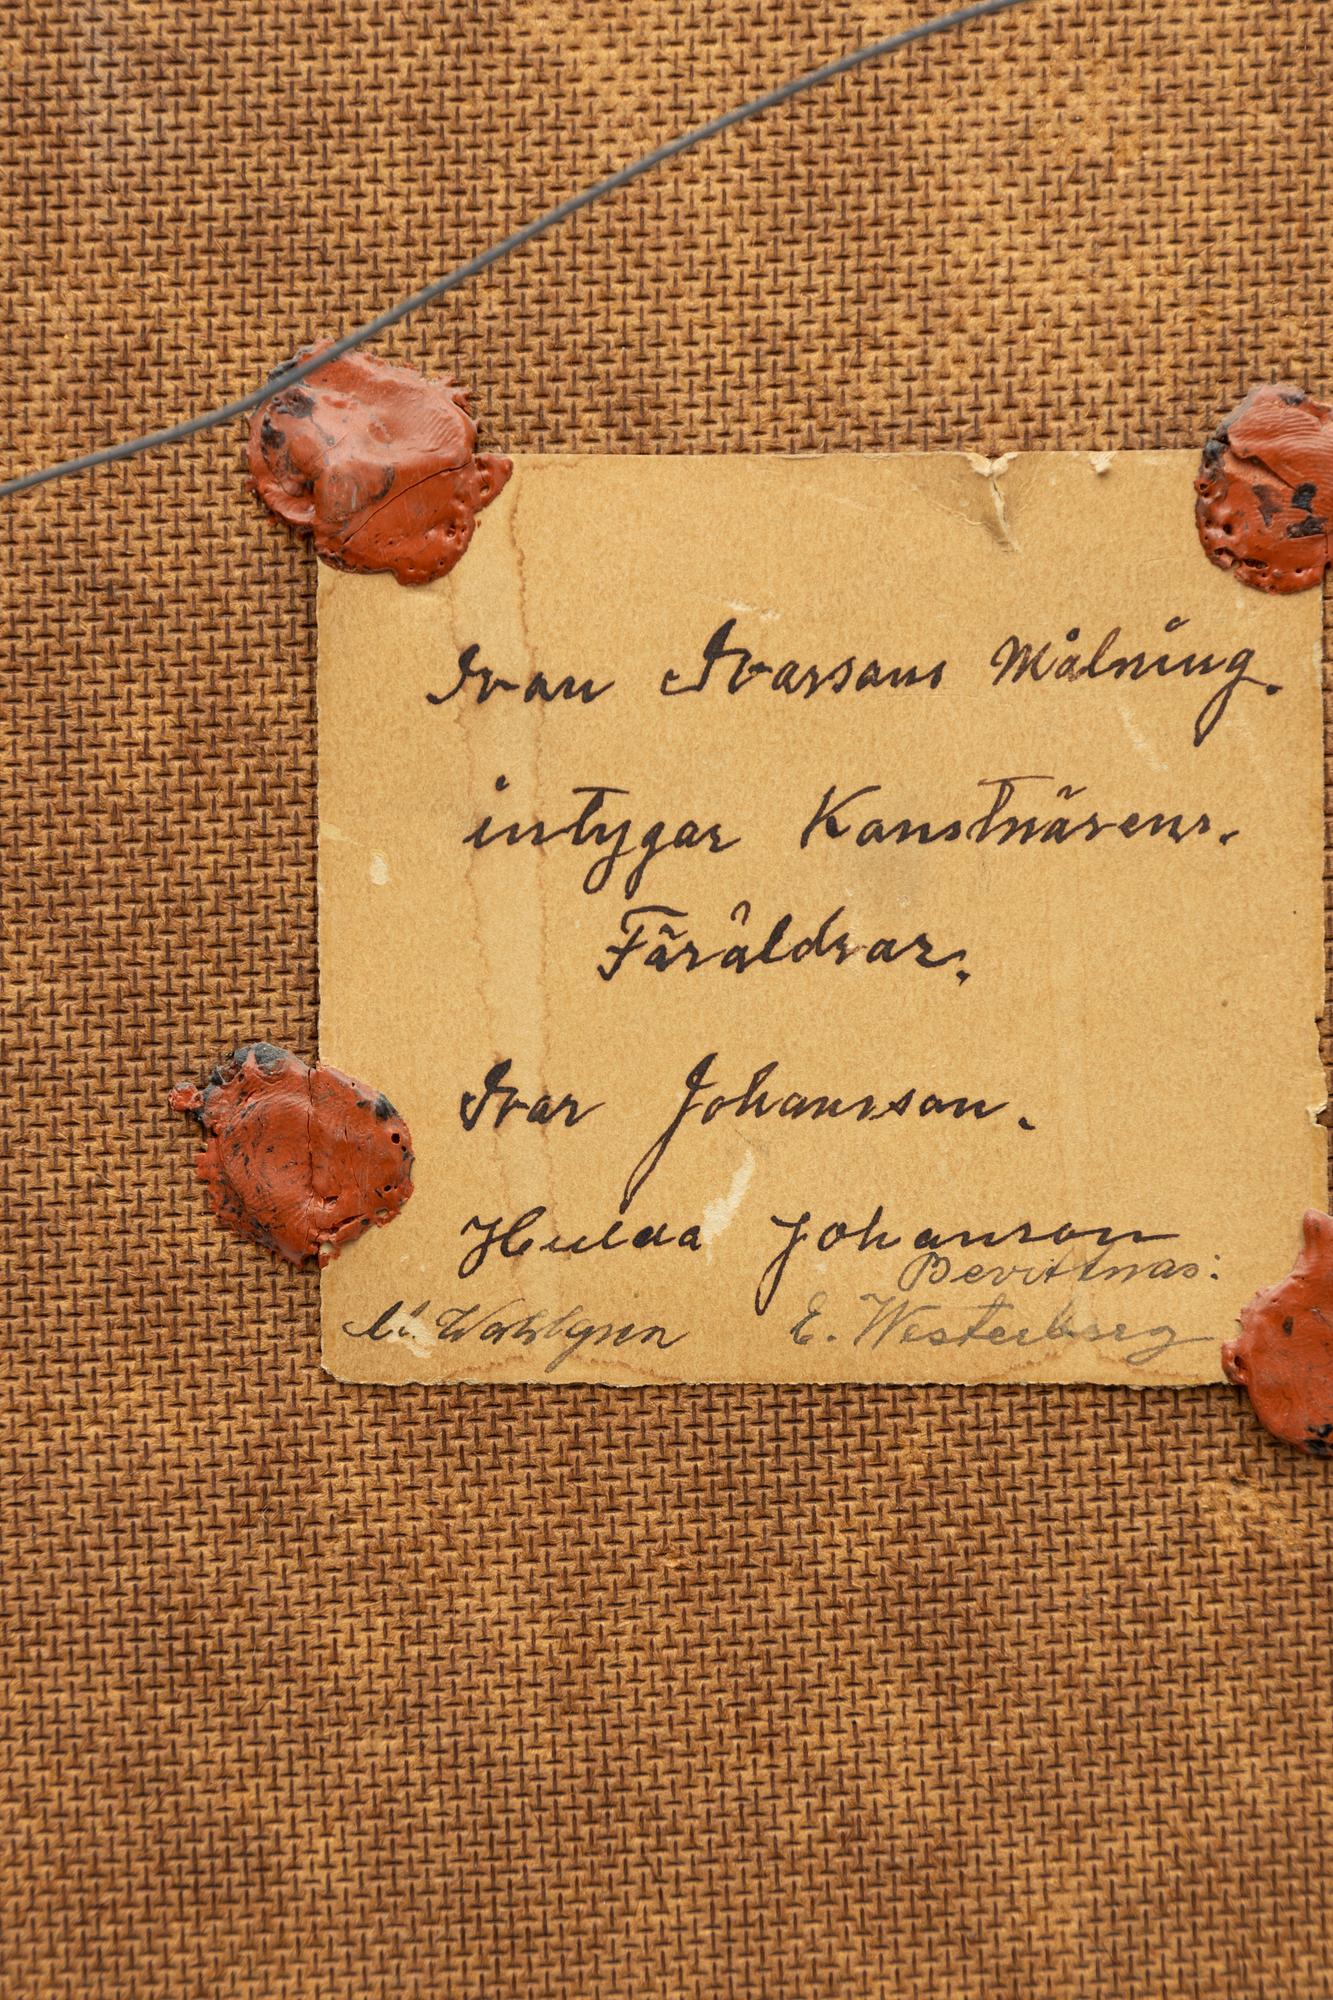 Ivan Ivarsons Målning.
intygar Konstnärens.
Föräldrar.
Ivar Johansson.
Hulda Johanson
Bevittnas:
Wahlgren E. Westerberg